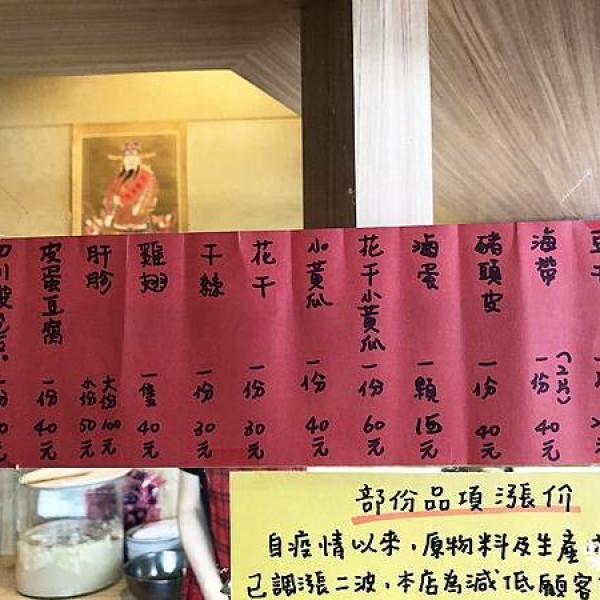 豆干
海帶 (2片) 一份 40元
豬頭皮 一份 40元
滷蛋 一顆 15元
花干小黃瓜 一份 60元
小黃瓜 一份 40元
花干 一份 30元
干絲 一份 30元
雞翅 一隻 40元
肝胗 大份100元 小份50元
皮蛋豆腐 一份 40元
一份
部份品項漲价
自疫情以來，原物料及生產
已調漲二波，本店為減低顧客